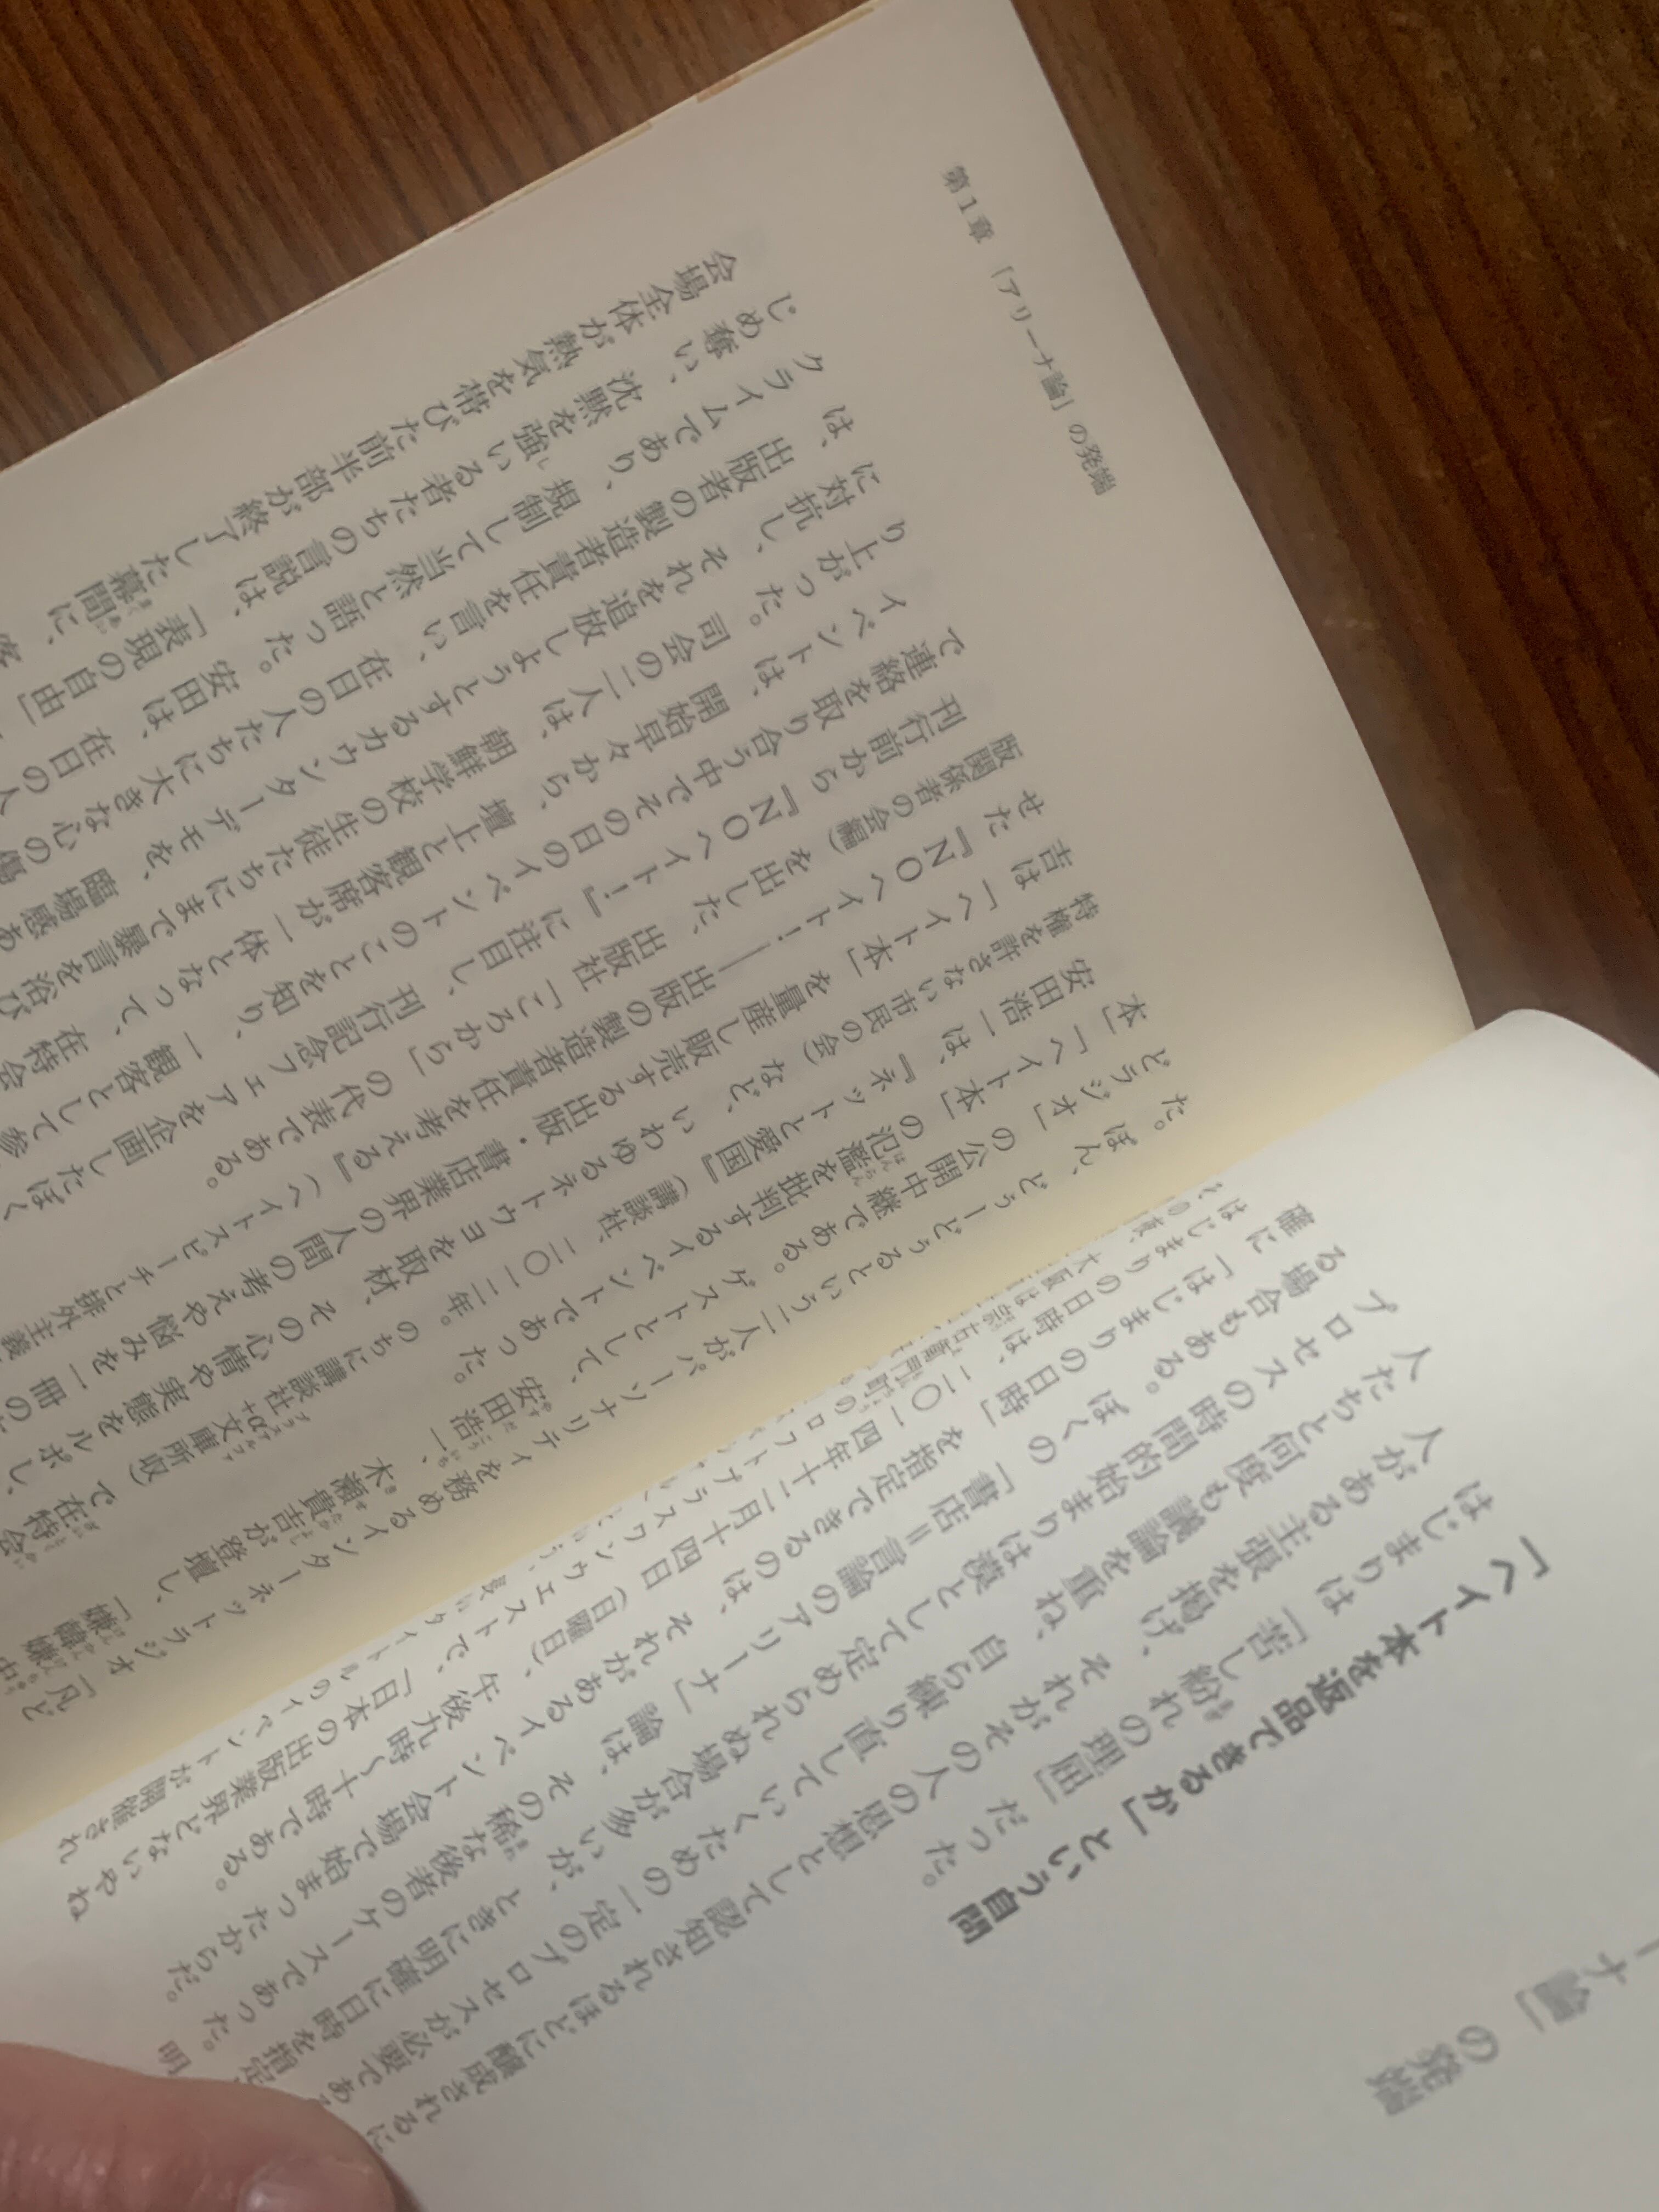 ーナ論」の発端
「ヘイト本を返品できるか」という自問
はじまりは「苦し紛れの理屈」だった。
人がある主張を掲げ、それがその人の思想として認知されるほどに醸成されるに
人たちと何度も議論を重ね、自ら練り直していくための一定のプロセスが必要であ
プロセスの時間的始まりは漠として定められぬ場合が多いが、ときに明確に日時を指定
る場合もある。ぼくの「書店=言論のアリーナ」論は、その稀な後者のケースであった。明
確に「はじまりの日時」を指定できるのは、それがあるイベント会場で始まったからだ。
はじまりの日時は、二〇一四年十二月十四日(日曜日)、午後九時〜十時である。
大阪は宗右衛門町のロフトプラスワンウェストで、「日本の出版業界どないやね
タイトルのイベントが開催され
第1章 「アリーナ論」の発端
た。
ぽん、どぅーどぅるという二人がパーソナリティを務めるインターネットラジオ「凡
どラジオ」の公開中継である。ゲストとして、安田浩一、木瀬貴吉が登壇し、「嫌韓」「嫌中
本」「ヘイト本」の氾濫を批判するイベントであった。
安田浩一は、『ネットと愛国』(講談社、二〇一二年。のちに講談社+α文庫所収)で在特会
特権を許さない市民の会)など、いわゆるネトウヨを取材、その心情や実態をルポし、
吉は「ヘイト本」を量産し販売する出版・書店業界の人間の考えや悩みを一冊の
せた『NOヘイト!――出版の製造者責任を考える』(ヘイトスピーチと排外主義
版関係者の会編)を出した、出版社「ころから」の代表である。
刊行前から『NOヘイト!』に注目し、刊行記念フェアを企画したぼく
で連絡を取り合う中でその日のイベントのことを知り、一観客として参
イベントは、開始早々から、壇上と観客席が一体となって、在特会
り上がった。司会の二人は、朝鮮学校の生徒たちにまで暴言を浴び
に対抗し、それを追放しようとするカウンターデモを、臨場感あ
は、出版者の製造者責任を言い、在日の人たちに大きな心の傷
クライムであり、規制して当然と語った。安田は、在日の人
じめ奪い、沈黙を強いる者たちの言説は、「表現の自由」
会場全体が熱気を帯びた前半部が終了した幕間に、客